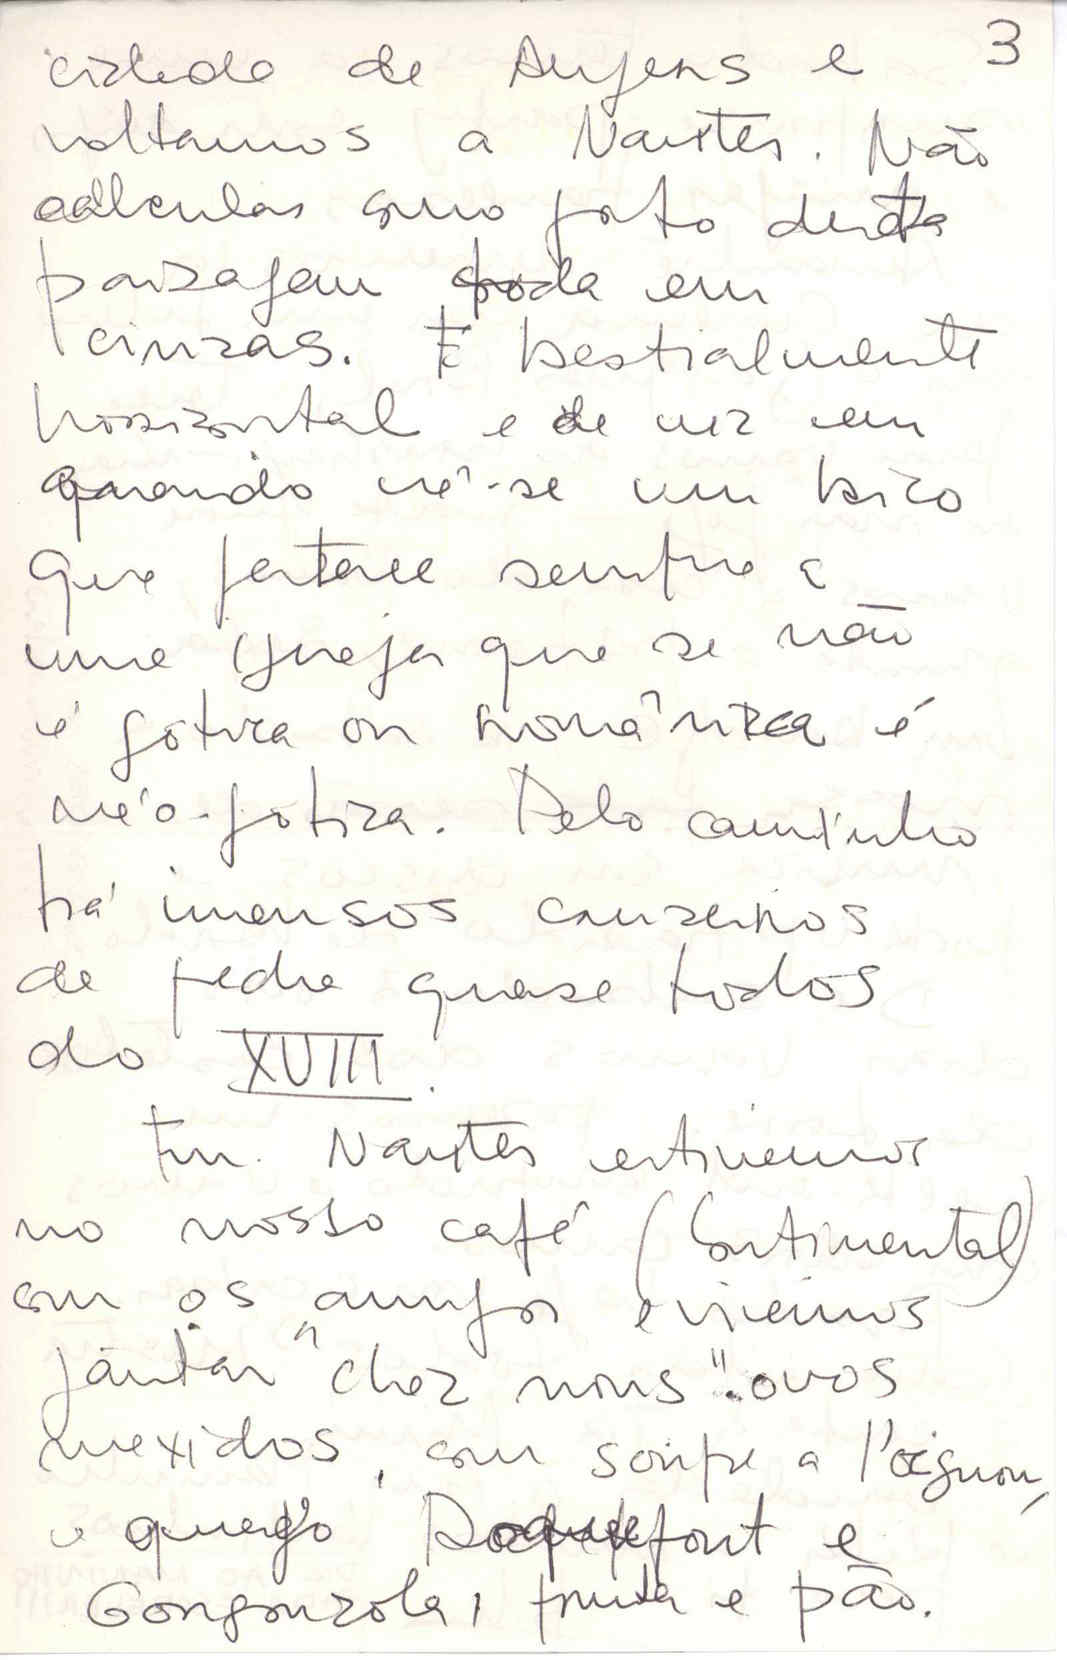 3
cidade de Angers e
voltamos a Nantes. Não
calculas como gosto desta
paisagem toda em
cinzas. É bestialmente
horizontal e de vez em
quando vê-se um bico
que pertence sempre a
uma igreja que se não
é gótica ou românica é
néo-gótica. Pelo caminho
há imensos cruzeiros
de pedra quase todos
do XVIII.
Em Nantes estivemos
no nosso café (Continental)
com os amigos e viemos
jantar "chez nous". ovos
mexidos, com soupe a l'oignon,
e queijo Roquefort e
Gongonzola, fruta e pão.